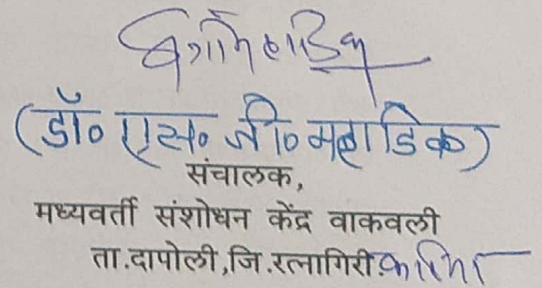 (डॉ० एस० जी० महाडिक)
संचालक,
मध्यवर्ती संशोधन केंद्र वाकवली
ता.दापोली,जि.रत्नागिरी.करिता